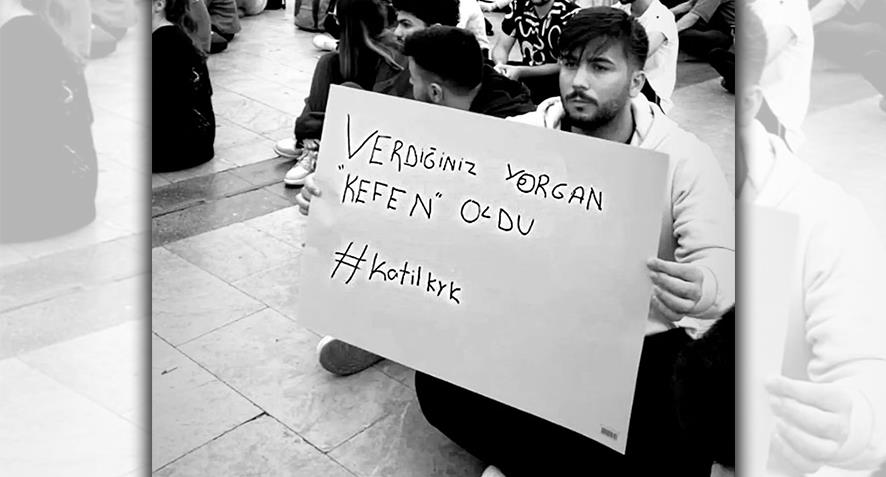 VERDİĞİNİZ YORGAN
"KEFEN" OLDU
#Katilkyk